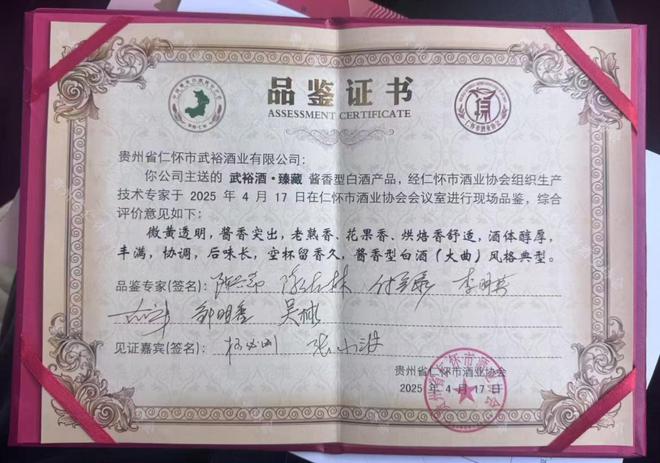 品鉴证书
ASSESSMENT CERTIFICATE
贵州省仁怀市武裕酒业有限公司：
你公司主送的 武裕酒·臻藏 酱香型白酒产品，经仁怀市酒业协会组织生产
技术专家于 2025 年 4 月 17 日在仁怀市酒业协会会议室进行现场品鉴，综合
评价意见如下：
微黄透明，酱香突出，老熟香、花果香、烘焙香舒适，酒体醇厚，
丰满，协调，后味长，空杯留香久，酱香型白酒（大曲）风格典型。
品鉴专家(签名)：
邹明鑫 吴彬
见证嘉宾(签名)：
贵州省仁怀市酒业协会
2025 年 4 月 17 日